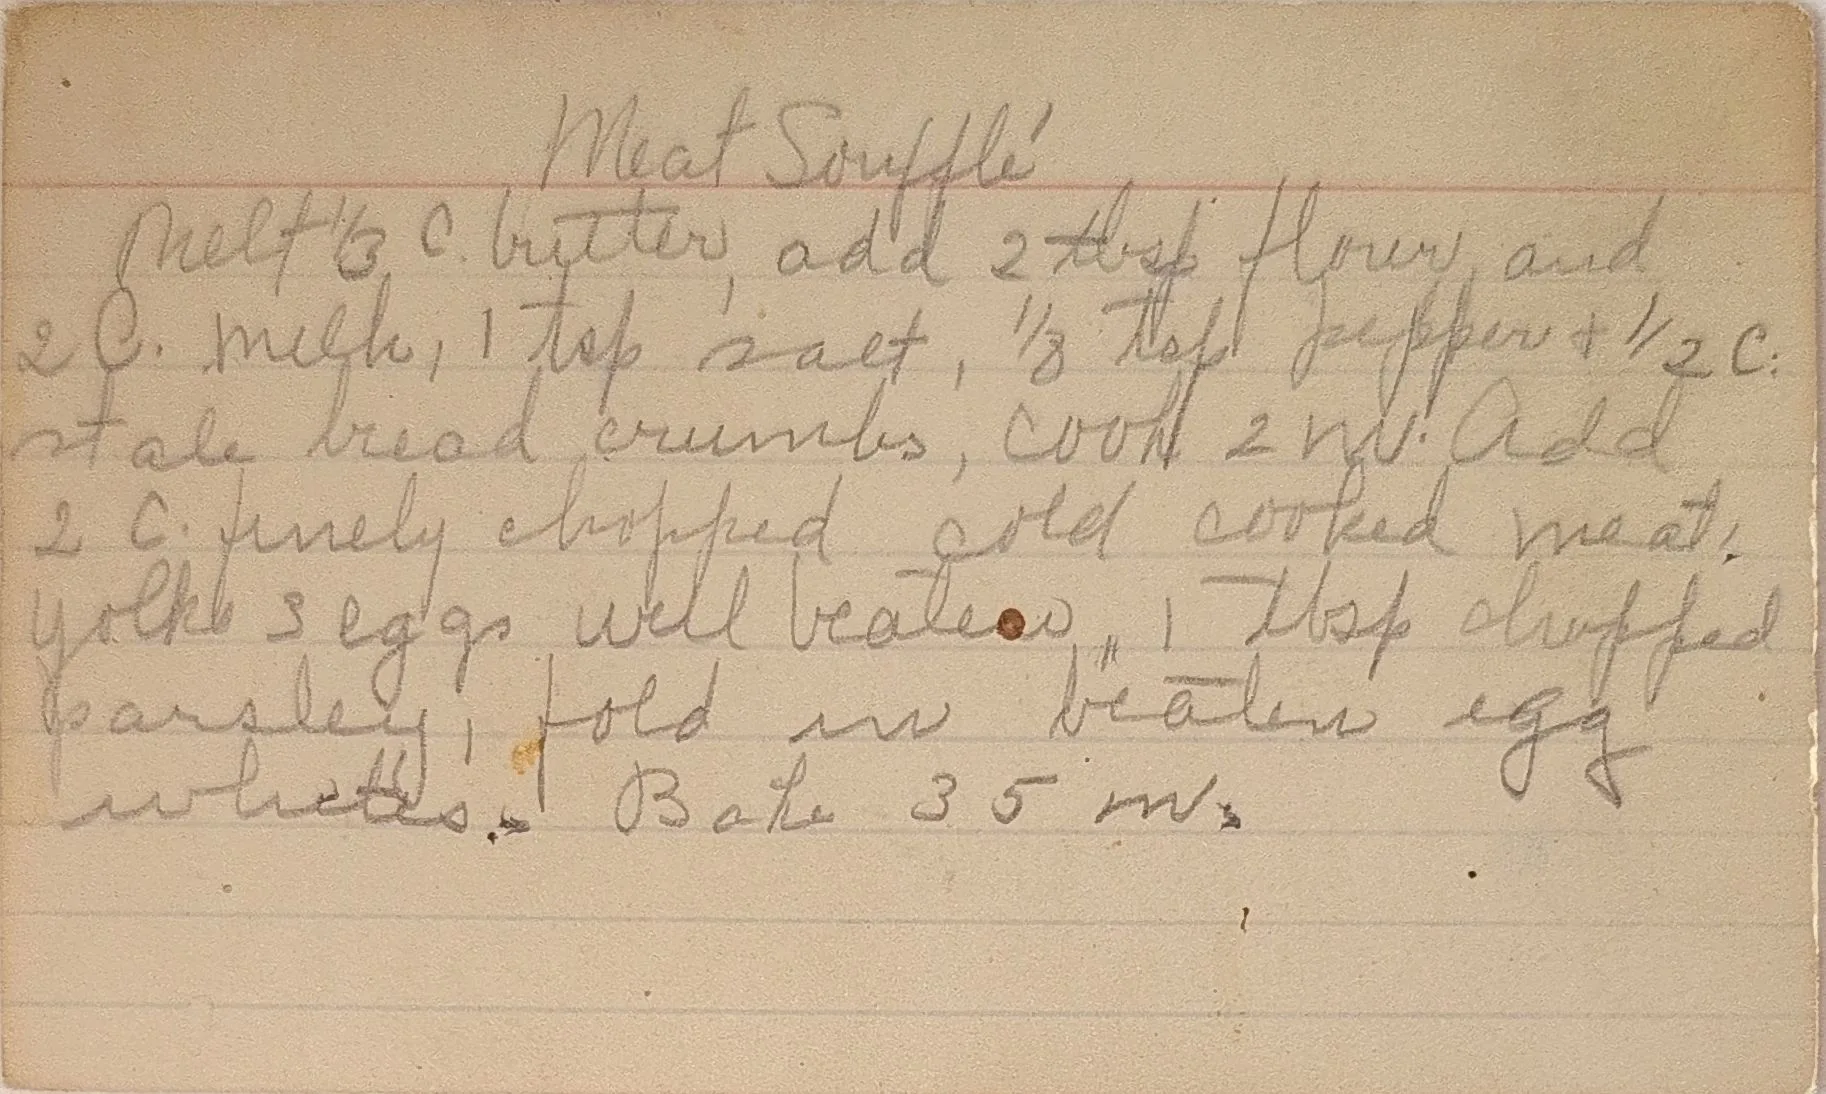 Meat Soufflé
Melt 1/3 C. butter, add 2 tbsp flour, and
2 C. milk, 1 tsp salt, 1/8 tsp pepper + 1/2 C.
stale bread crumbs, cook 2 m. Add
2 C. finely chopped cold cooked meat,
yolks 3 eggs well beaten, 1 tbsp chopped
parsley, fold in beaten egg
whites. Bake 35 m.